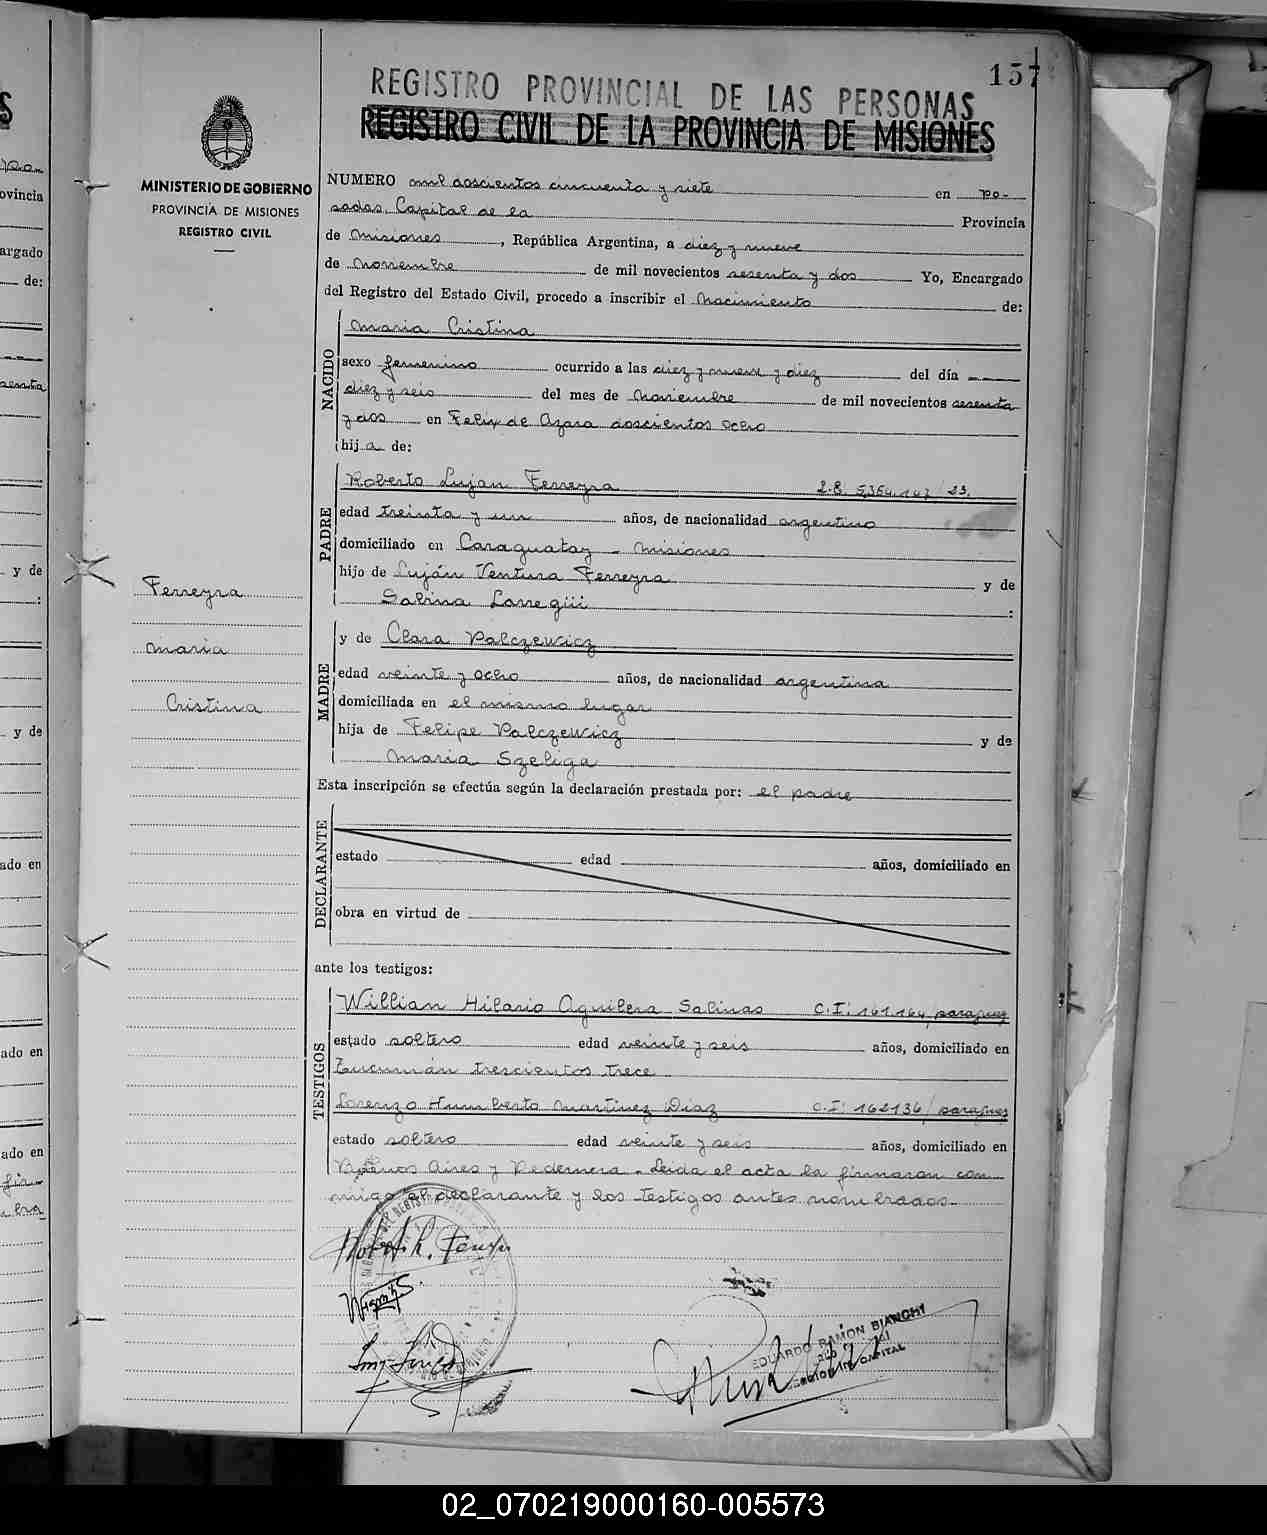 157
REGISTRO PROVINCIAL DE LAS PERSONAS
REGISTRO CIVIL DE LA PROVINCIA DE MISIONES
MINISTERIO DE GOBIERNO
PROVINCIA DE MISIONES
REGISTRO CIVIL
NUMERO mil doscientos cincuenta y siete en Po-
sadas, Capital de la Provincia
de Misiones, República Argentina, a diez y nueve
de Noviembre de mil novecientos sesenta y dos Yo, Encargado
del Registro del Estado Civil, procedo a inscribir el Nacimiento de:
NACIDO
Maria Cristina
sexo femenino ocurrido a las diez y nueve y diez del día
diez y seis del mes de Noviembre de mil novecientos sesenta
y dos en Felix de Azara doscientos ocho
hij a de:
PADRE
Roberto Lujan Ferreyra
edad treinta y un años, de nacionalidad argentino
domiciliado en Caraguatay - Misiones
hijo de Luján Ventura Ferreyra y de
Sabina Larregüi :
Ferreyra
Maria
Cristina
MADRE
y de Clara Palczewicz
edad veinte y ocho años, de nacionalidad argentina
domiciliada en el mismo lugar
hija de Felipe Palczewicz y de
Maria Szeliga
Esta inscripción se efectúa según la declaración prestada por: el padre
DECLARANTE
estado edad años, domiciliado en
obra en virtud de
ante los testigos:
TESTIGOS
Willian Hilario Aguilera Salinas C.I: 161.164/paraguay
estado soltero edad veinte y seis años, domiciliado en
Tucumán trescientos trece
Lorenzo Humberto Martinez Diaz C.I: 162136/paraguay
estado soltero edad veinte y seis años, domiciliado en
Buenos Aires y Pedernera. Leida el acta la firmaron con-
migo el declarante y los testigos antes nombrados.
EDUARDO RAMÓN BIANCHI
CAPITAL
02_070219000160-005573